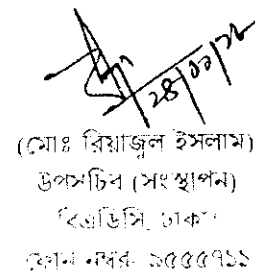 ২৪/১১/২১
(মোঃ রিয়াজুল ইসলাম)
উপসচিব (সংস্থাপন)
বিএডিসি, ঢাকা।
ফোন নম্বর- ৯৫৫৫৭১১